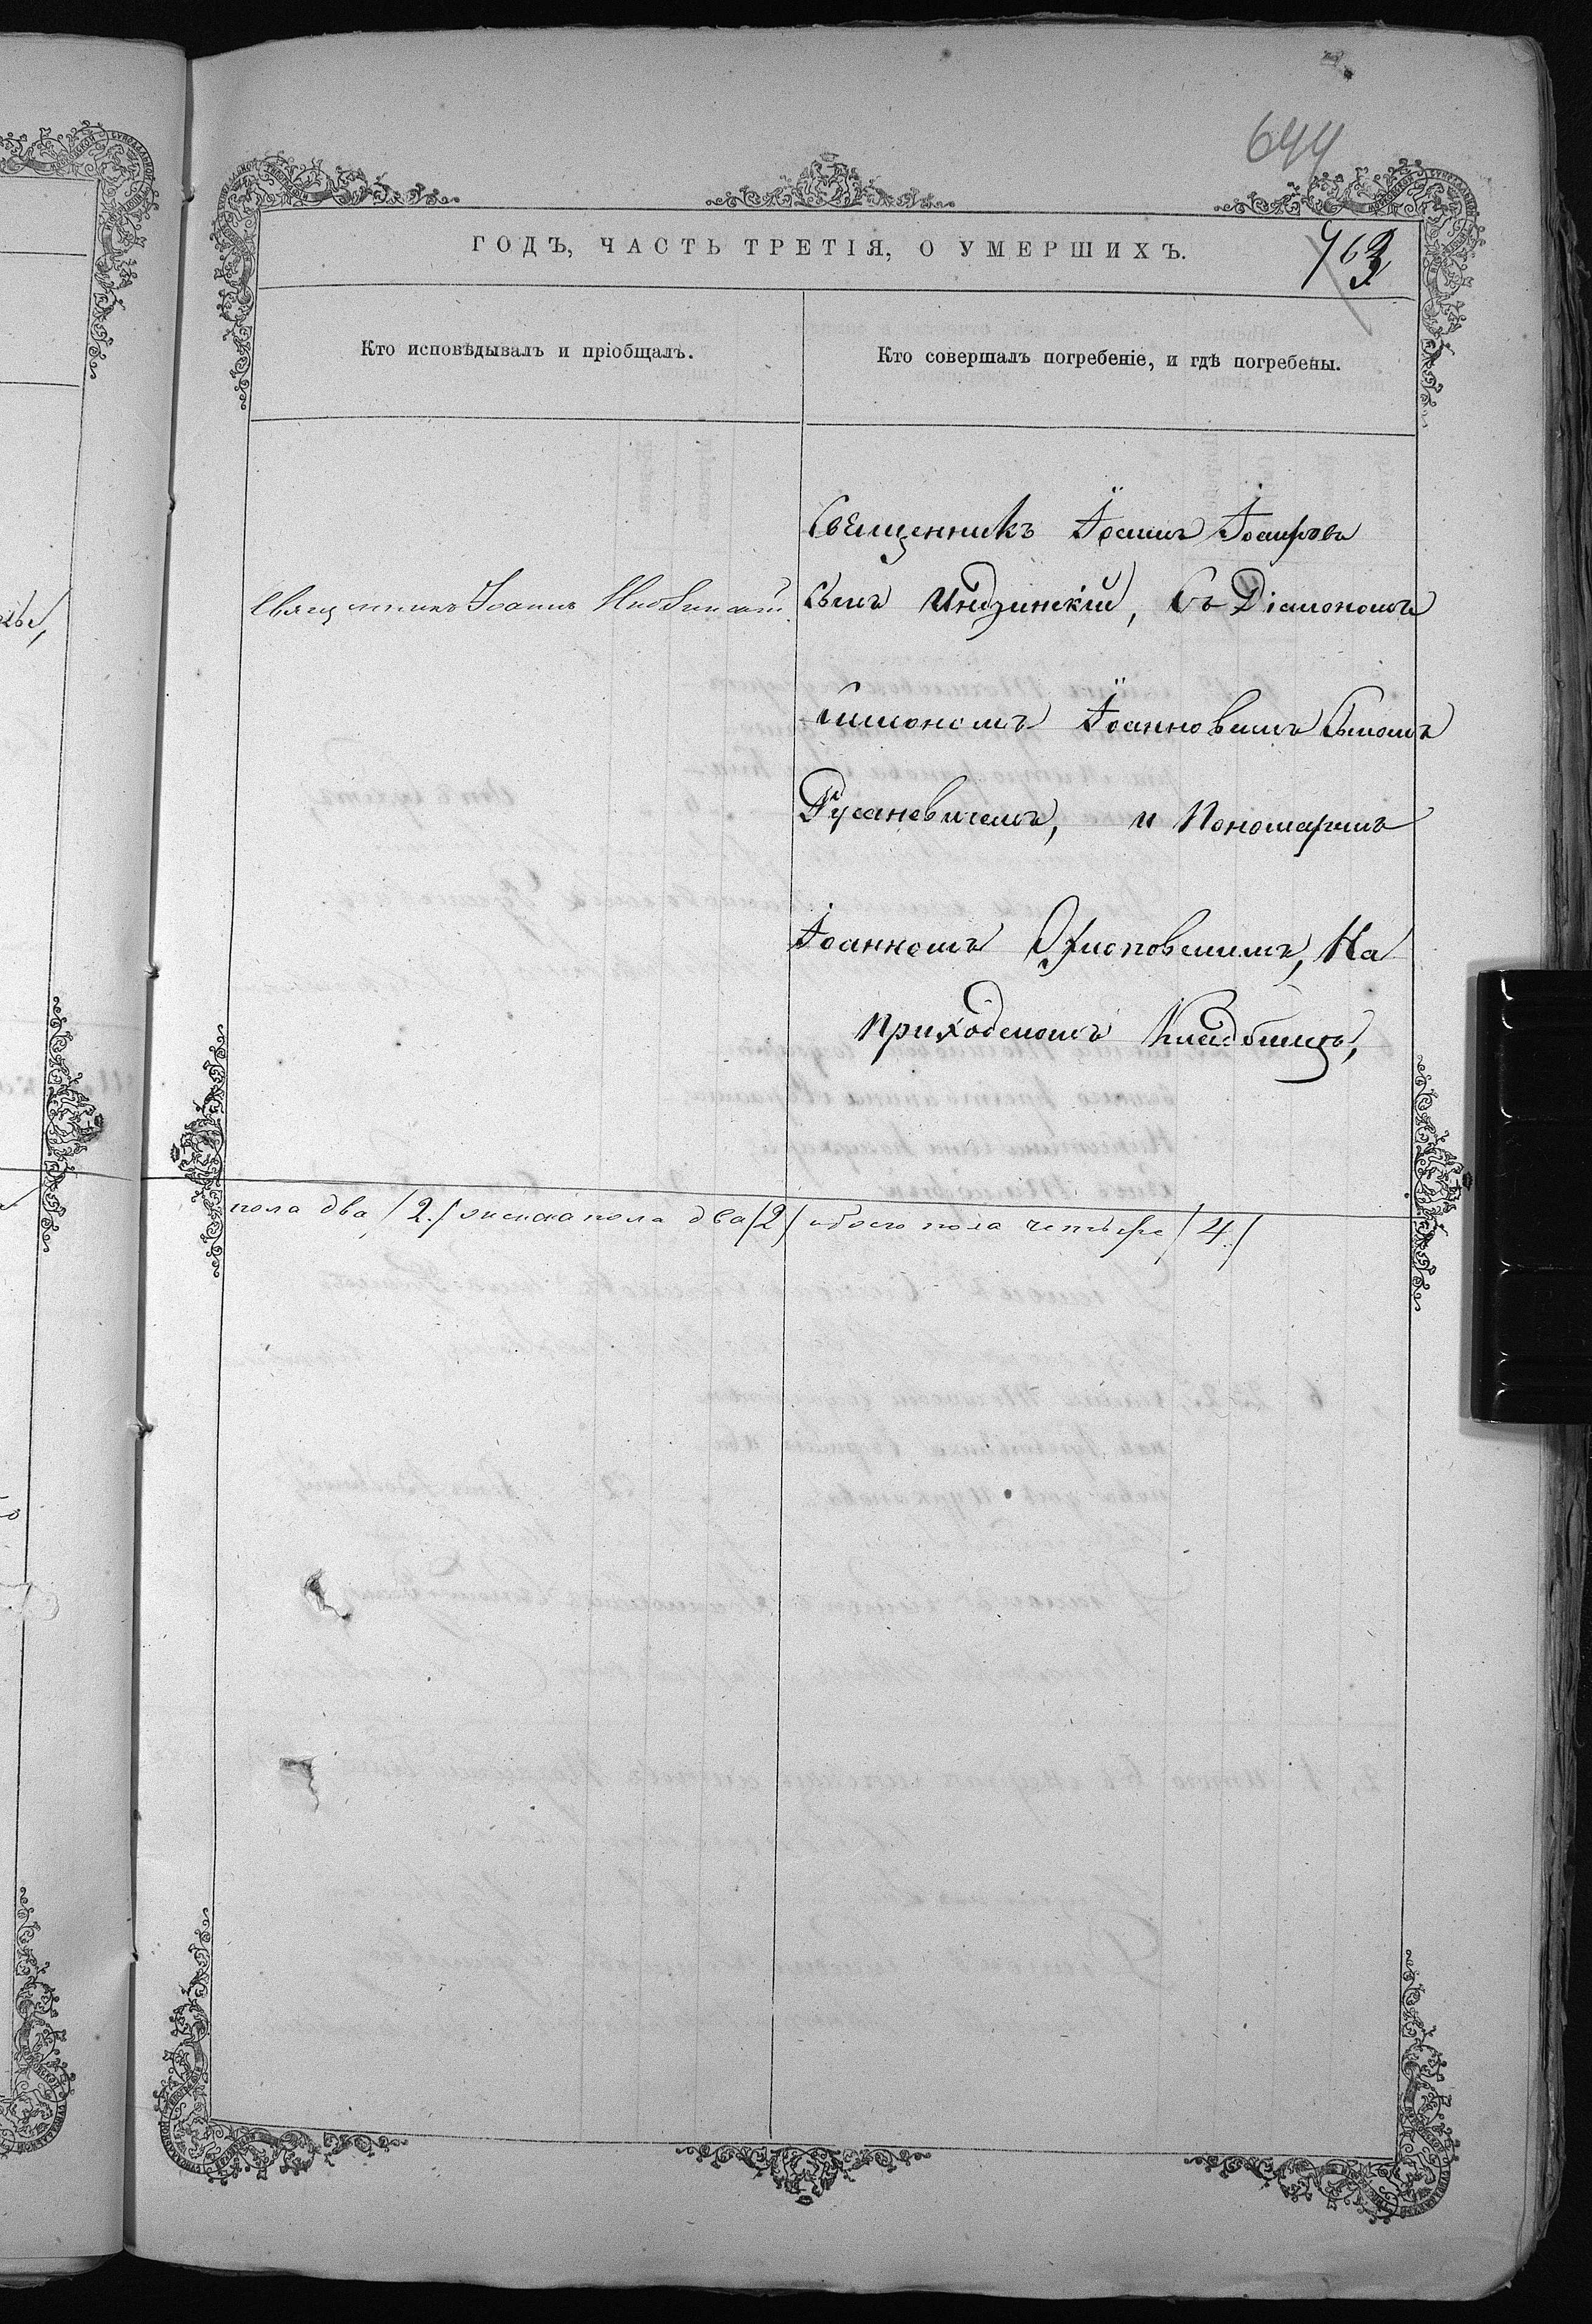 644
ГОДЪ, ЧАСТЬ ТРЕТІЯ, О УМЕРШИХЪ.
763
Кто исповѣдывалъ и пріобщалъ.
Кто совершалъ погребеніе, и гдѣ погребены.
Священникъ Іоаннъ
Священникъ Іоаннъ
Сынъ Индзинскій, Съ Діакономъ
Симономъ Іоанновымъ Сыномъ
и Пономаремъ
Іоанномъ На
приходскомъ Кладбищѣ,
пола два /2./ женска пола два /2/ обоего пола четыре /4/